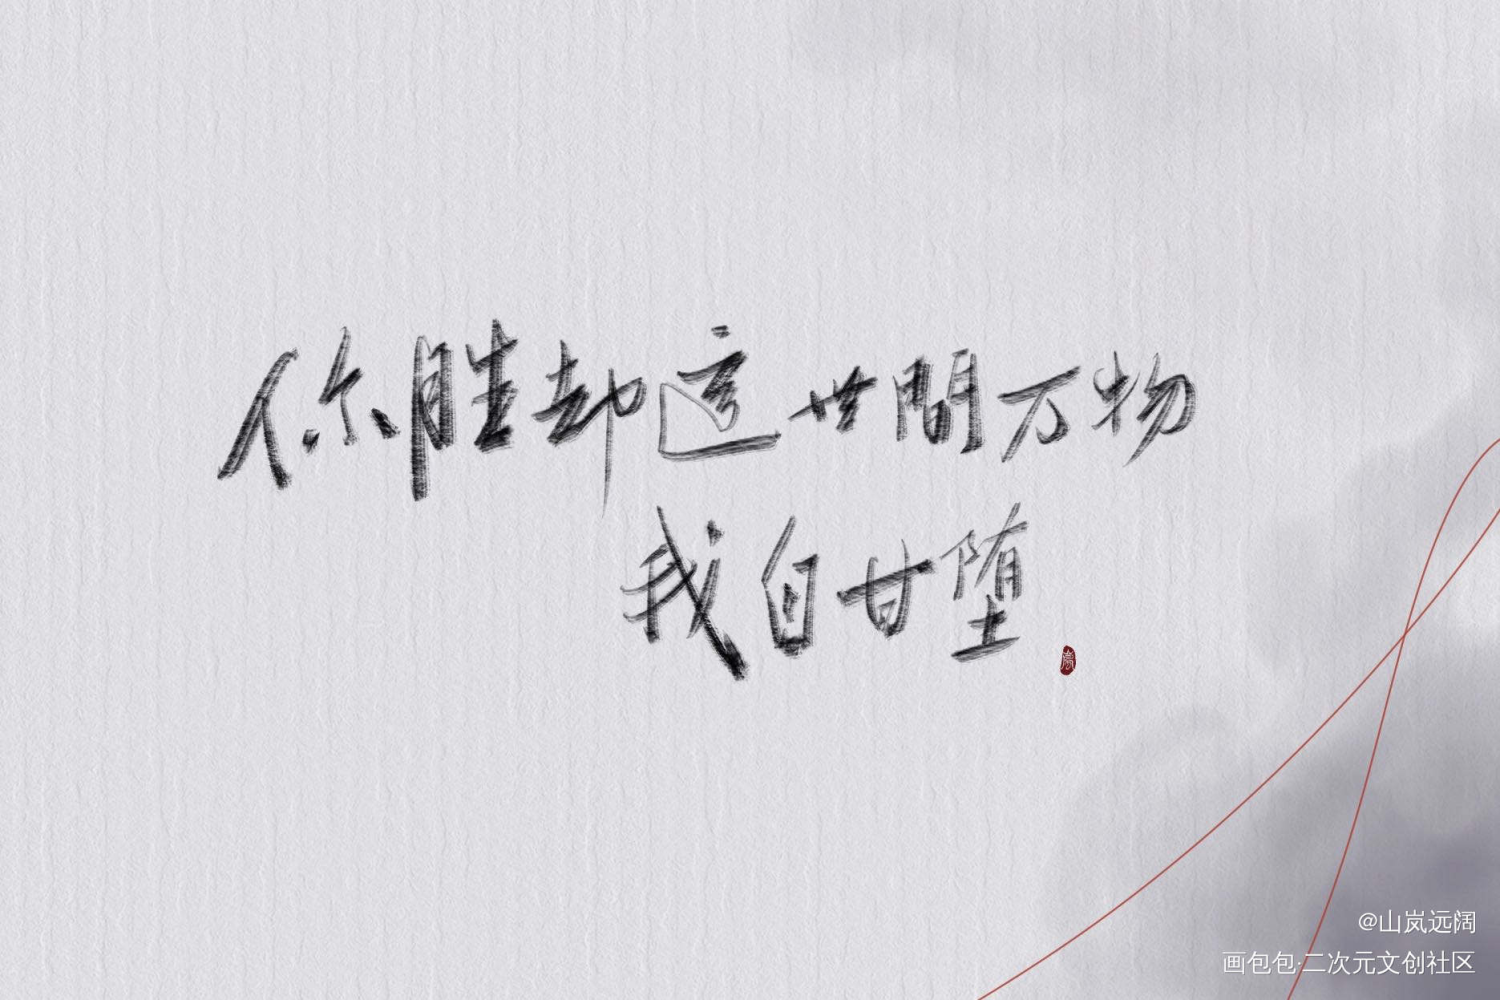 你胜却這世間万物
我自甘堕
@山岚远阔
画包包·二次元文创社区